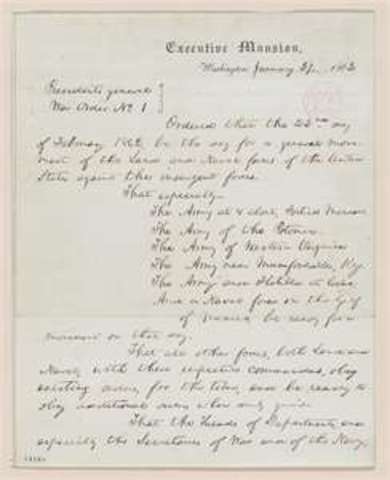 Executive Mansion,
Washington, January 27, 1862
President's general
War Order No 1
Ordered that the 22nd day
of February 1862, be the day for a general move-
ment of the Land and Naval forces of the United
States against the insurgent forces.
That especially—
The Army at & about, Fortress Monroe
The Army of the Potomac
The Army of Western Virginia
The Army near Munfordsville, Ky.
The Army and Flotilla at Cairo
And a Naval force in the Gulf
of Mexico, be ready for a
movement on that day.
That all other forces, both Land and
Naval, with their respective commanders, obey
existing orders, for the time, and be ready to
obey additional orders when duly given.
That the Heads of Departments, and
especially the Secretaries of War and of the Navy,